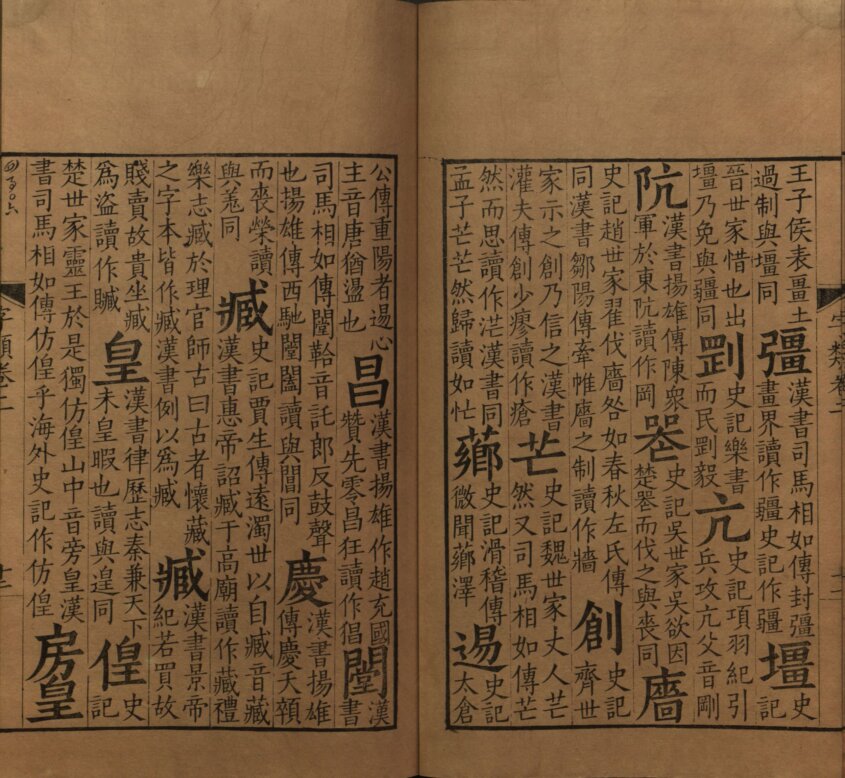 字類卷二
十二
王子侯表畺土
過制與壃同
彊
漢書司馬相如傳封彊
畫界讀作疆史記作疆
壃
史
記
晉世家惜也出
壃乃免與疆同
史記樂書
而民㓻毅
亢
史記項羽紀引
兵攻亢父音剛
阬
漢書揚雄傳陳衆
軍於東阬讀作岡
史記吳世家吳欲因
楚而伐之與喪同
廧
史記趙世家翟伐廧咎如春秋左氏傳
同漢書鄒陽傳牽帷廧之制讀作牆
創
史記
齊世
家示之創乃信之漢書
灌夫傳創少瘳讀作瘡
芒
史記魏世家丈人芒
然又司馬相如傳芒
然而思讀作茫漢書同
孟子芒芒然歸讀如忙
薌
史記滑稽傳
微聞薌澤
逿
史記
太倉
公傳重陽者逿心
主音唐猶盪也
昌
漢書揚雄作趙充國
贊先零昌狂讀作倡
闛
漢
書
司馬相如傳闛鞈音託郎反鼓聲
也揚雄傳西馳闛闔讀與閶同
慶
漢書揚雄
傳慶夭顇
而喪榮讀
與羌同
臧
史記賈生傳遠濁世以自臧音藏
漢書惠帝詔臧于高廟讀作藏禮
樂志臧於理官師古曰古者懷藏
之字本皆作臧漢書例以爲臧
臧
漢書景帝
紀若買故
賤賣故貴坐臧
爲盜讀作贓
皇
漢書律歷志秦兼天下
未皇暇也讀與遑同
偟
史
記
楚世家靈王於是獨仿偟山中音旁皇漢
書司馬相如傳仿偟乎海外史記作仿偟
房皇
字類卷二
十二